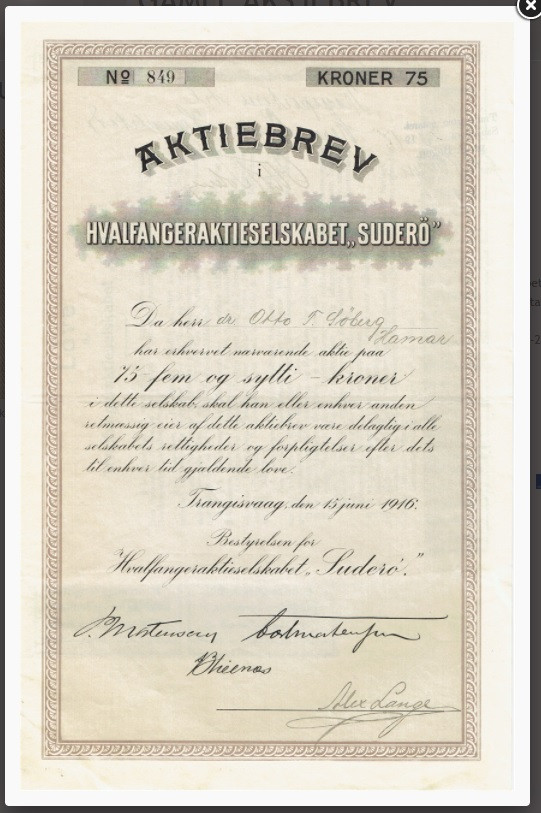 No 849 KRONER 75
AKTIEBREV
i
HVALFANGERAKTIESELSKABET „SUDERÖ”
Da herr dr. Otto T. Söberg
Hamar
har erhvervet nærværende aktie paa
75 - fem og sytti - kroner
i dette selskab, skal han eller enhver anden
retmæssig eier af dette aktiebrev være delagtig i alle
selskabets rettigheder og forpligtelser efter dets
til enhver tid gjældende love.
Trangisvaag, den 15 juni 1916.
Bestyrelsen for
Hvalfangeraktieselskabet „Suderö.”
P. Mortensen
Alex Lange